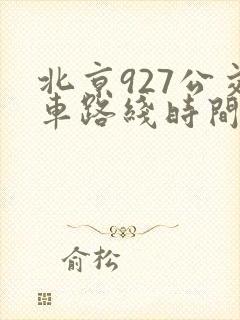 北京927公交
車路綫時間
俞松